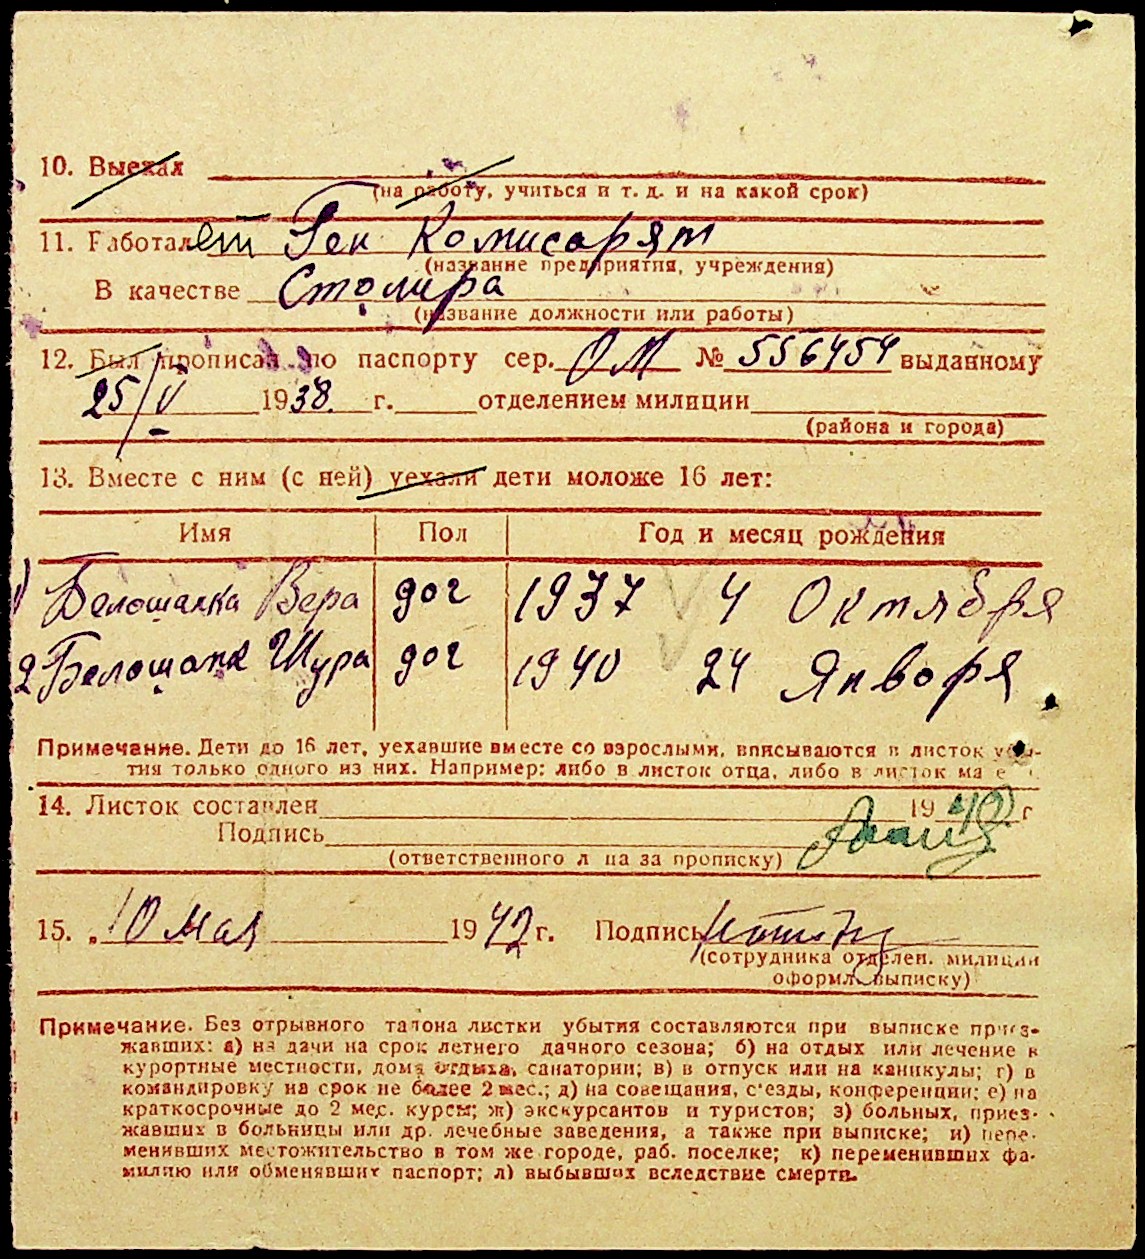 10. Выехал
(на работу, учиться и т. д. и на какой срок)
11. Работает Ген Комисарят
(название предприятия, учреждения)
В качестве Столяра
(название должности или работы)
12. Был прописан по паспорту сер. ОМ № 556454 выданному
25/V 1938 г. отделением милиции
(района и города)
13. Вместе с ним (с ней) уехали дети моложе 16 лет:
Имя Пол Год и месяц рождения
1) Белошапка Вера доч 1937 4 Октября
2 Белошапка Шура доч 1940 24 Января
Примечание. Дети до 16 лет, уехавшие вместе со взрослыми, вписываются в листок убы-
тия только одного из них. Например: либо в листок отца, либо в листок ма е
14. Листок составлен 19 42 г
Подпись
(ответственного л ца за прописку)
15. 10 Мая 1942 г. Подпись
(сотрудника отделен. милиции
оформл. выписку)
Примечание. Без отрывного талона листки убытия составляются при выписке приез-
жавших: а) на дачи на срок летнего дачного сезона; б) на отдых или лечение в
курортные местности, дома отдыха, санатории; в) в отпуск или на каникулы; г) в
командировку на срок не более 2 мес.; д) на совещания, с'езды, конференции; е) на
краткосрочные до 2 мес. курсы; ж) экскурсантов и туристов; з) больных, приез-
жавших в больницы или др. лечебные заведения, а также при выписке; и) пере-
менивших местожительство в том же городе, раб. поселке; к) переменивших фа-
милию или обменявших паспорт; л) выбывших вследствие смерти.